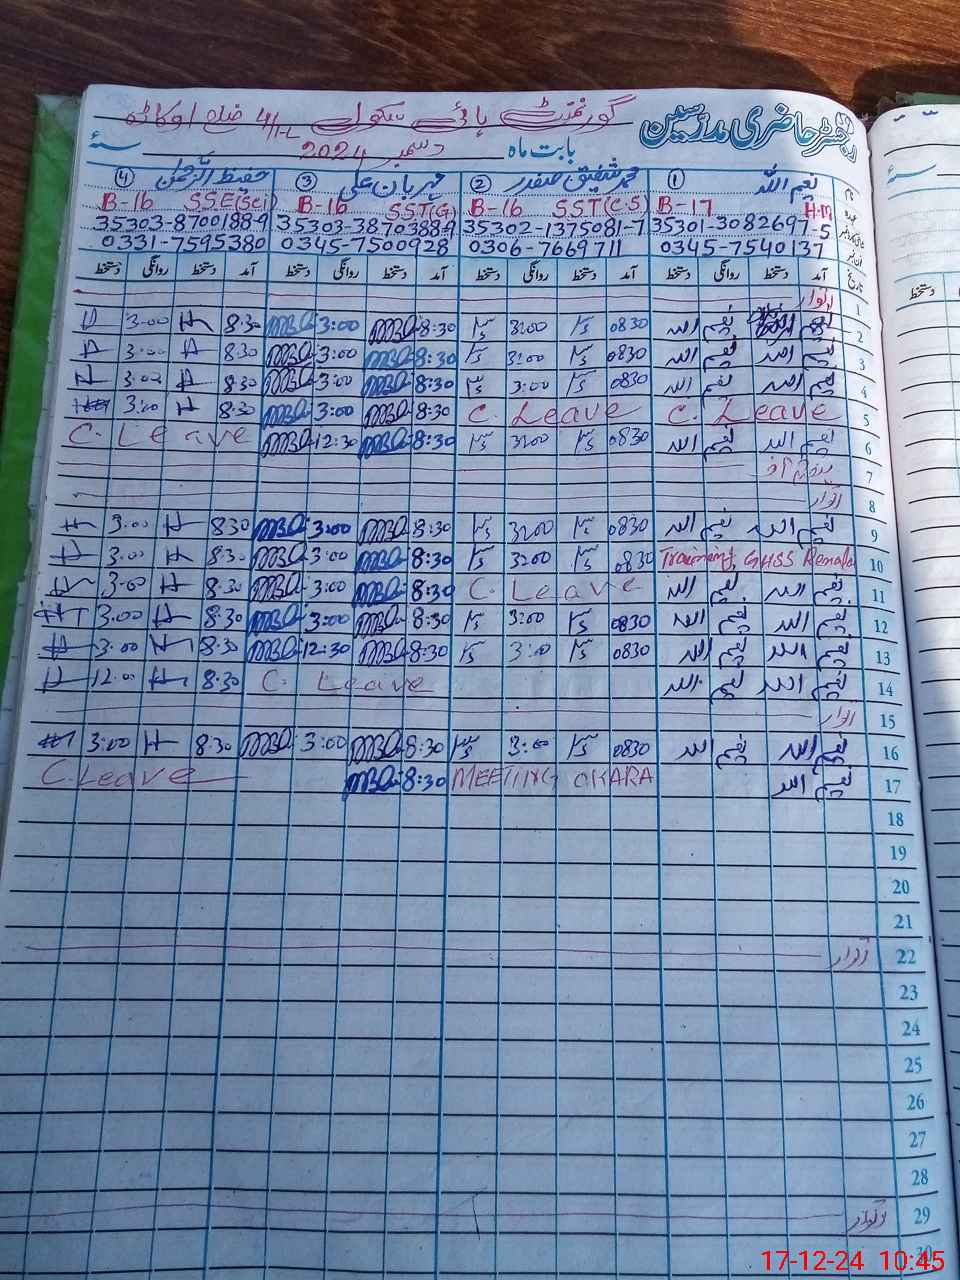 رجسٹر حاضری مدرسین
گورنمنٹ ہائی سکول 4/1-L ضلع اوکاڑہ
بابت ماہ دسمبر 2024 سنہ
نام نعیم اللہ ① محمد شفیق صفدر ② مہربان علی ③ حفیظ الرحمن ④
H.M B-17 SST(C-S) B-16 SST(G) B-16 SSE(Sci) B-16
35301-3082697-5 35302-1375081-7 35303-3870388-9 35303-8700188-9
0345-7540137 0306-7669711 0345-7500928 0331-7595380
تاریخ آمد دستخط روانگی دستخط آمد دستخط روانگی دستخط آمد دستخط روانگی دستخط آمد دستخط روانگی دستخط
1 اتوار
2 نعیم اللہ نعیم اللہ 0830 3:00 8:30 3:00 8:30 3:00
3 نعیم اللہ نعیم اللہ 0830 3:00 8:30 3:00 8:30 3:00
4 نعیم اللہ نعیم اللہ 0830 3:00 8:30 3:00 8:30 3:00
5 C. Leave C. Leave 8:30 3:00 8:30 3:00
6 نعیم اللہ نعیم اللہ 0830 3:00 8:30 12:30 C. Leave
7
8 اتوار
9 نعیم اللہ نعیم اللہ 0830 3:00 8:30 3:00 8:30 3:00
10 Training GHSS Renala 0830 3:00 8:30 3:00 8:30 3:00
11 نعیم اللہ نعیم اللہ C. Leave 8:30 3:00 8:30 3:00
12 نعیم اللہ نعیم اللہ 0830 3:00 8:30 3:00 8:30 3:00
13 نعیم اللہ نعیم اللہ 0830 3:00 8:30 12:30 8:30 3:00
14 نعیم اللہ نعیم اللہ C. Leave 8:30 12:00
15 اتوار
16 نعیم اللہ نعیم اللہ 0830 3:00 8:30 3:00 8:30 3:00
17 نعیم اللہ MEETING OKARA 8:30 C. Leave
18
19
20
21
22 اتوار
23
24
25
26
27
28
29 اتوار
30
17-12-24 10:45